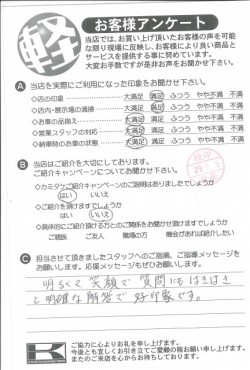 軽
お客様アンケート
当店では、お買い上げ頂いたお客様の声を可能
な限り現場に反映し、お客様により良い商品と
サービスを提供する事に努めています。
大変お手数ですが是非お声をお聞かせ下さい。
A 当店を実際にご利用になった印象をお聞かせ下さい。
◇店の印象 大満足 満足 ふつう やや不満 不満
◇店内・展示場の清掃 大満足 満足 ふつう やや不満 不満
◇お車の品揃え 大満足 満足 ふつう やや不満 不満
◇営業スタッフの対応 大満足 満足 ふつう やや不満 不満
◇納車時のお車の状態 大満足 満足 ふつう やや不満 不満
B 当店はご紹介を大切にしております。
ご紹介キャンペーンについてお聞かせ下さい。
◇カミタケご紹介キャンペーンのご説明はありましたでしょうか
はい いいえ
◇ご紹介を頂けますでしょうか
はい いいえ
◇具体的にご紹介頂ける方とのご関係をお聞かせ頂けますでしょうか
ご親族 ご友人 職場の方 機会があれば紹介したい
C 担当させて頂きましたスタッフへのご指摘、ご指導メッセージを
お願いします。応援メッセージもぜひお願いします。
明るくて笑顔で質問にもはきはき
と明確な解答で好印象です。
K
ご協力に心よりお礼を申し上げます。
今後とも宜しくお引き立てご愛顧の程お願い申し上げます。
またのご来店を心からお待ちしております。